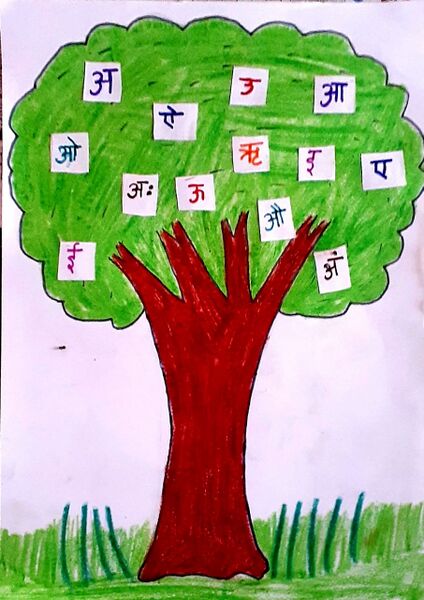 अ
उ
आ
ऐ
ओ
ऋ
इ
ए
अः
ऊ
औ
ई
अं